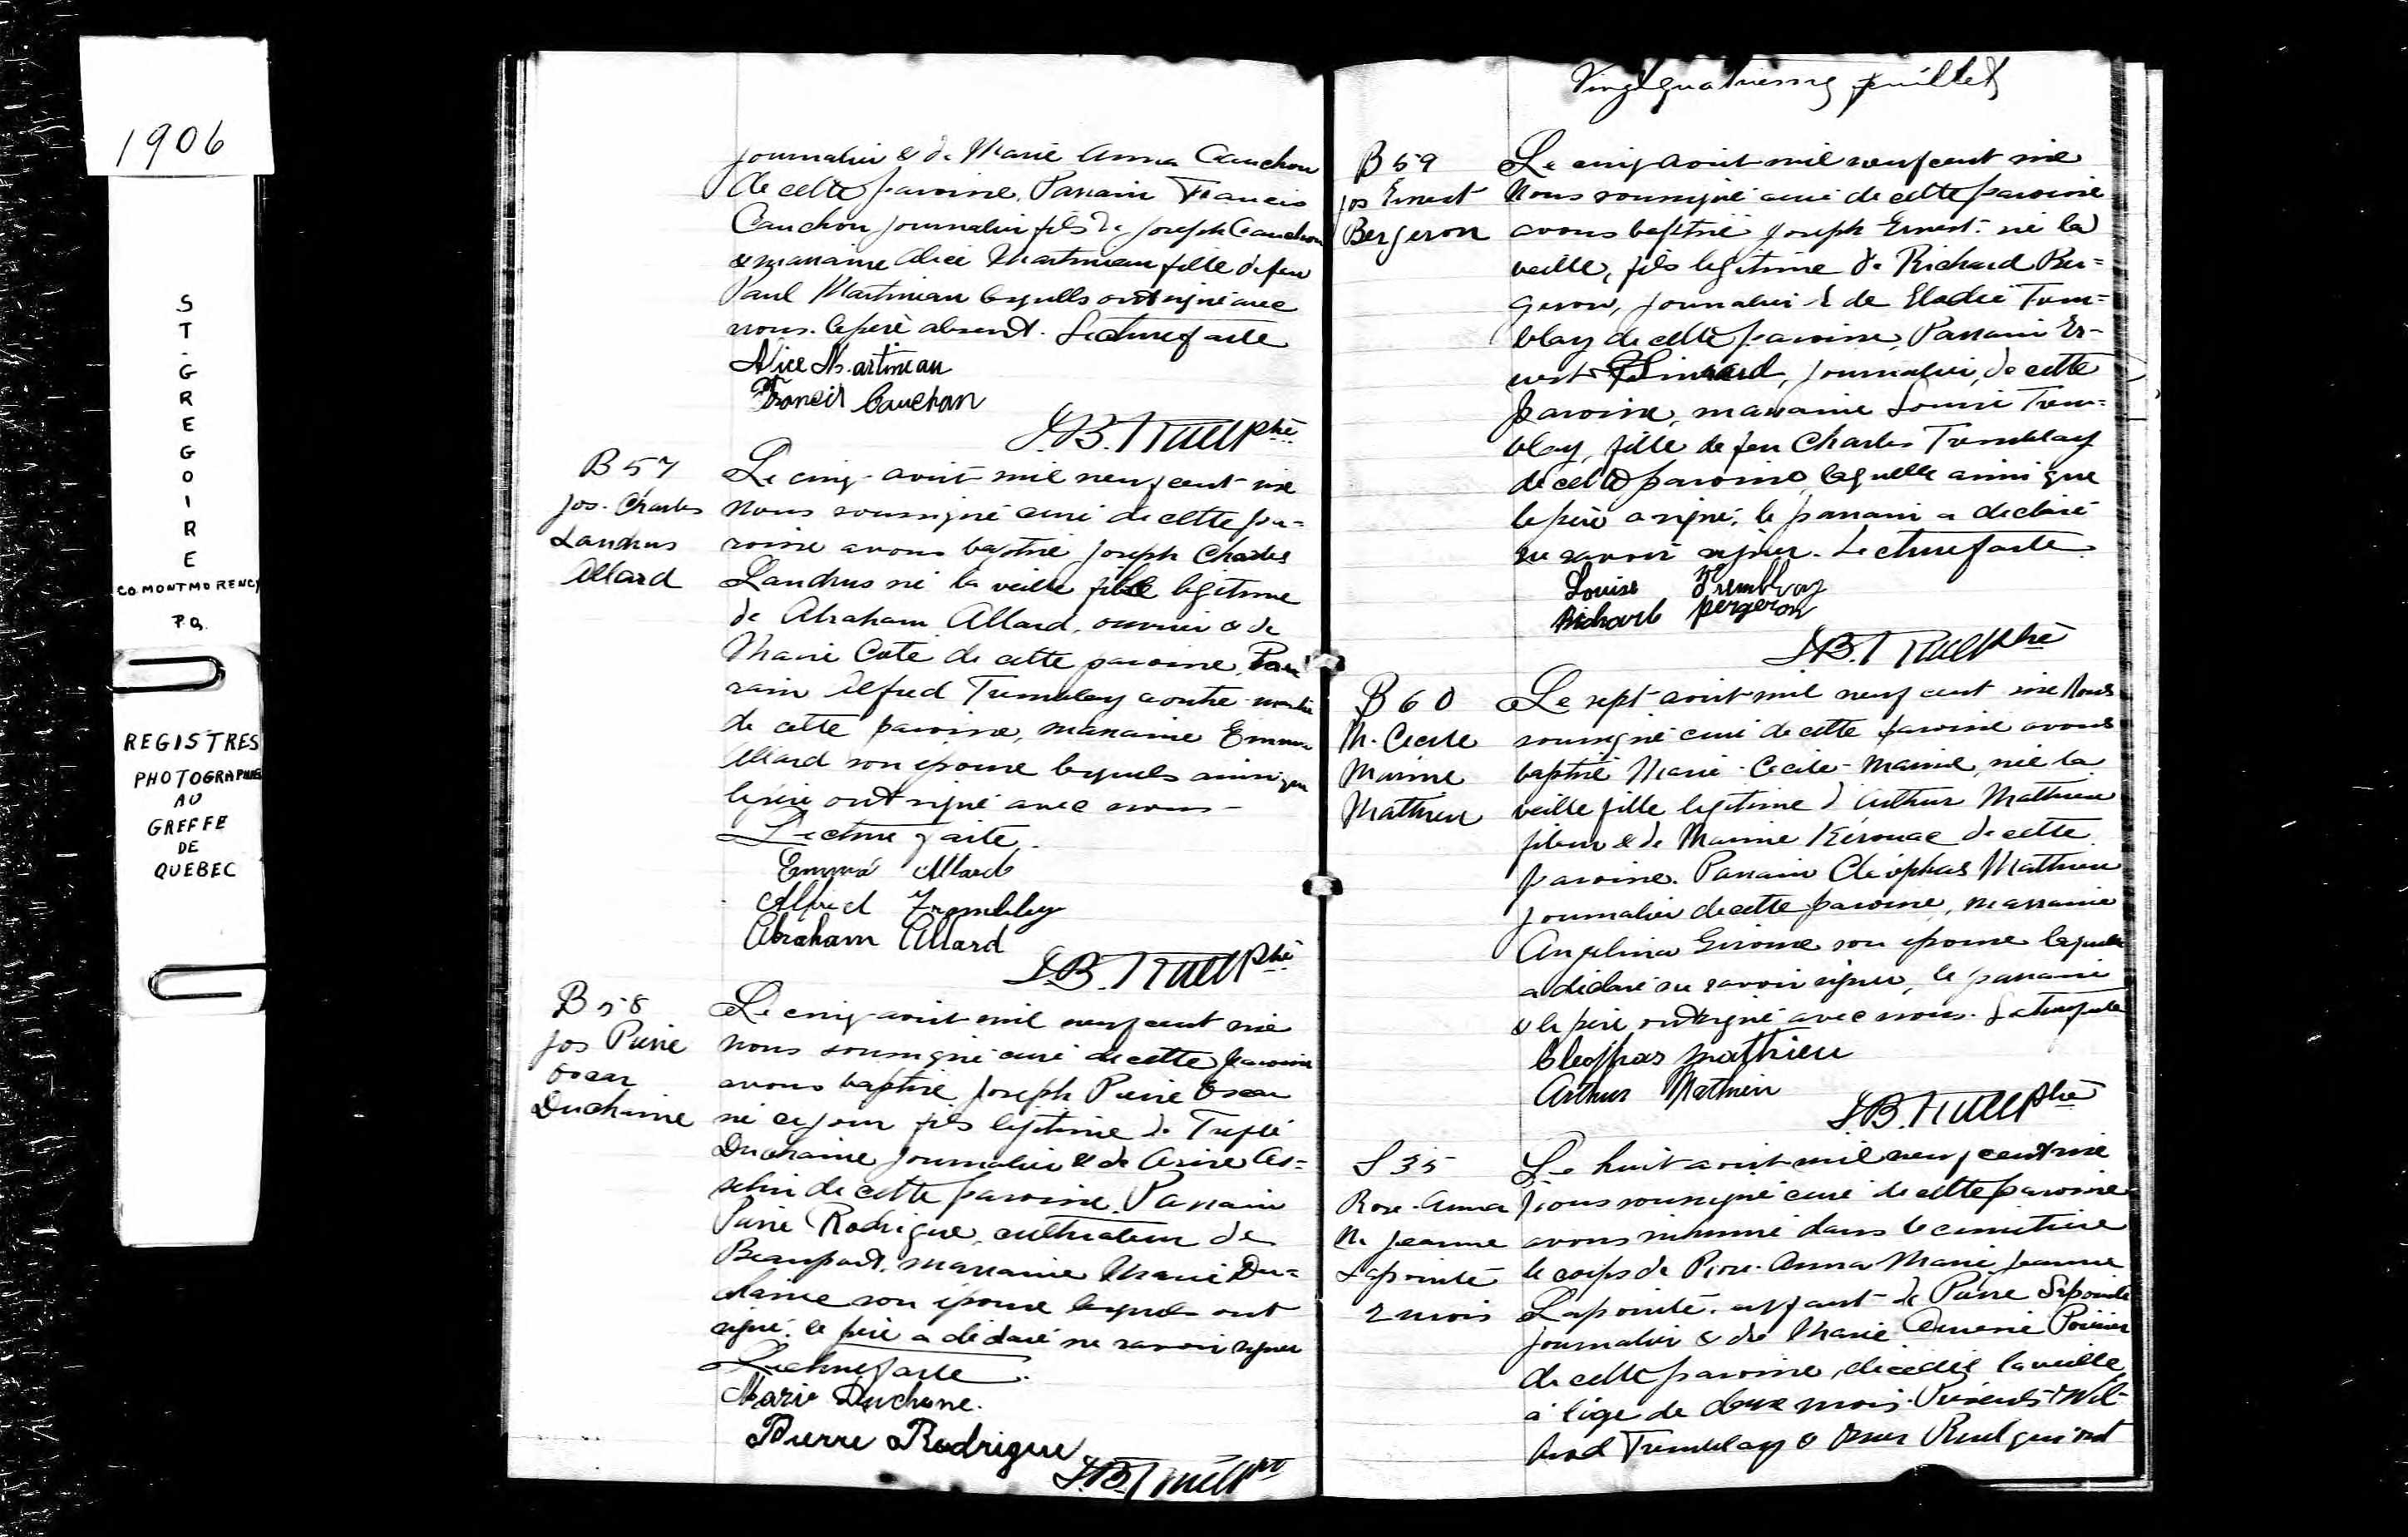 1906
ST-GREGOIRE
CO. MONTMORENCY
P.Q.
REGISTRES
PHOTOGRAPHIÉS
AU
GREFFE
DE
QUEBEC
journalier & de Marie Anna Cauchon
de cette paroisse. Parrain Francis
Cauchon journalier fils de Joseph Cauchon
& marraine Alice Martineau fille de feu
Paul Martineau lesquels ont signé avec
nous. le père absent. Lecture faite
Alice Martineau
Francis Cauchon
J.B. Ruel ptre
B 57
Jos. Charles
Landrus
Allard
Le cinq août mil neuf cent six
nous soussigné curé de cette pa-
roisse avons baptisé Joseph Charles
Landrus né la veille fils légitime
de Abraham Allard, ouvrier & de
Marie Coté de cette paroisse, Par
rain Alfred Tremblay contre-maître
de cette paroisse, marraine Emma
Allard son épouse lesquels ainsi que
le père ont signé avec nous -
Lecture faite.
Emma Allard
Alfred Trembley
Abraham Allard
J.B. Ruel ptre
B 58
Jos Pierre
Oscar
Duchaine
Le cinq août mil neuf cent six
nous soussigné curé de cette paroisse
avons baptisé Joseph Pierre Oscar
né ce jour fils légitime de Trefflé
Duchaine journalier & de As-
selin de cette paroisse. Parrain
Pierre Rodrigue, cultivateur de
Beauport, marraine Marie Du-
chaine son épouse lesquels ont
signé. le père a déclaré ne savoir signer
Lecture faite.
Marie Duchene.
Pierre Rodrigue
J.B. Ruel ptre
Vingt quatrieme feuillet
B 59
Jos Ernest
Bergeron
Le cinq août mil neuf cent six
Nous soussigné curé de cette paroisse
avons baptisé Joseph Ernest né la
veille, fils légitime de Richard Ber=
geron, journalier & de Elodie Trem=
blay de cette paroisse, Parrain Er-
nest Simard, journalier, de cette
paroisse, marraine Louise Trem=
blay, fille de feu Charles Tremblay
de cette paroisse, laquelle ainsi que
le père a signé, le parrain a déclaré
ne savoir signer. Lecture faite.
Louise Tremblay
Richard Bergeron
J.B. Ruel ptre
B 60
M. Cecile
Marine
Mathieu
Le sept août mil neuf cent six Nous
soussigné curé de cette paroisse avons
baptisé Marie-Cecile-Marine, née la
veille fille légitime d'Arthur Mathieu
fileur & de Marine Kérouac de cette
paroisse. Parrain Cléophas Mathieu
journalier de cette paroisse, marraine
Angelina son épouse laquelle
a déclaré ne savoir signer, le parrain
& le père ont signé avec nous. Lecture faite
Cleophas Mathieu
Arthur Mathieu
J.B. Ruel ptre
S 35
Rose-Anna
M. Jeanne
Lapointe
2 mois
Le huit août mil neuf cent six
Nous soussigné curé de cette paroisse
avons inhumé dans le cimetière
le corps de Rose-Anna Marie Jeanne
Lapointe, enfant de Pierre Lapointe
journalier & de Marie Poirier
de cette paroisse, décédée la veille
à l'âge de deux mois. Présents Wil-
brod Tremblay & Omer Ruel qui ont